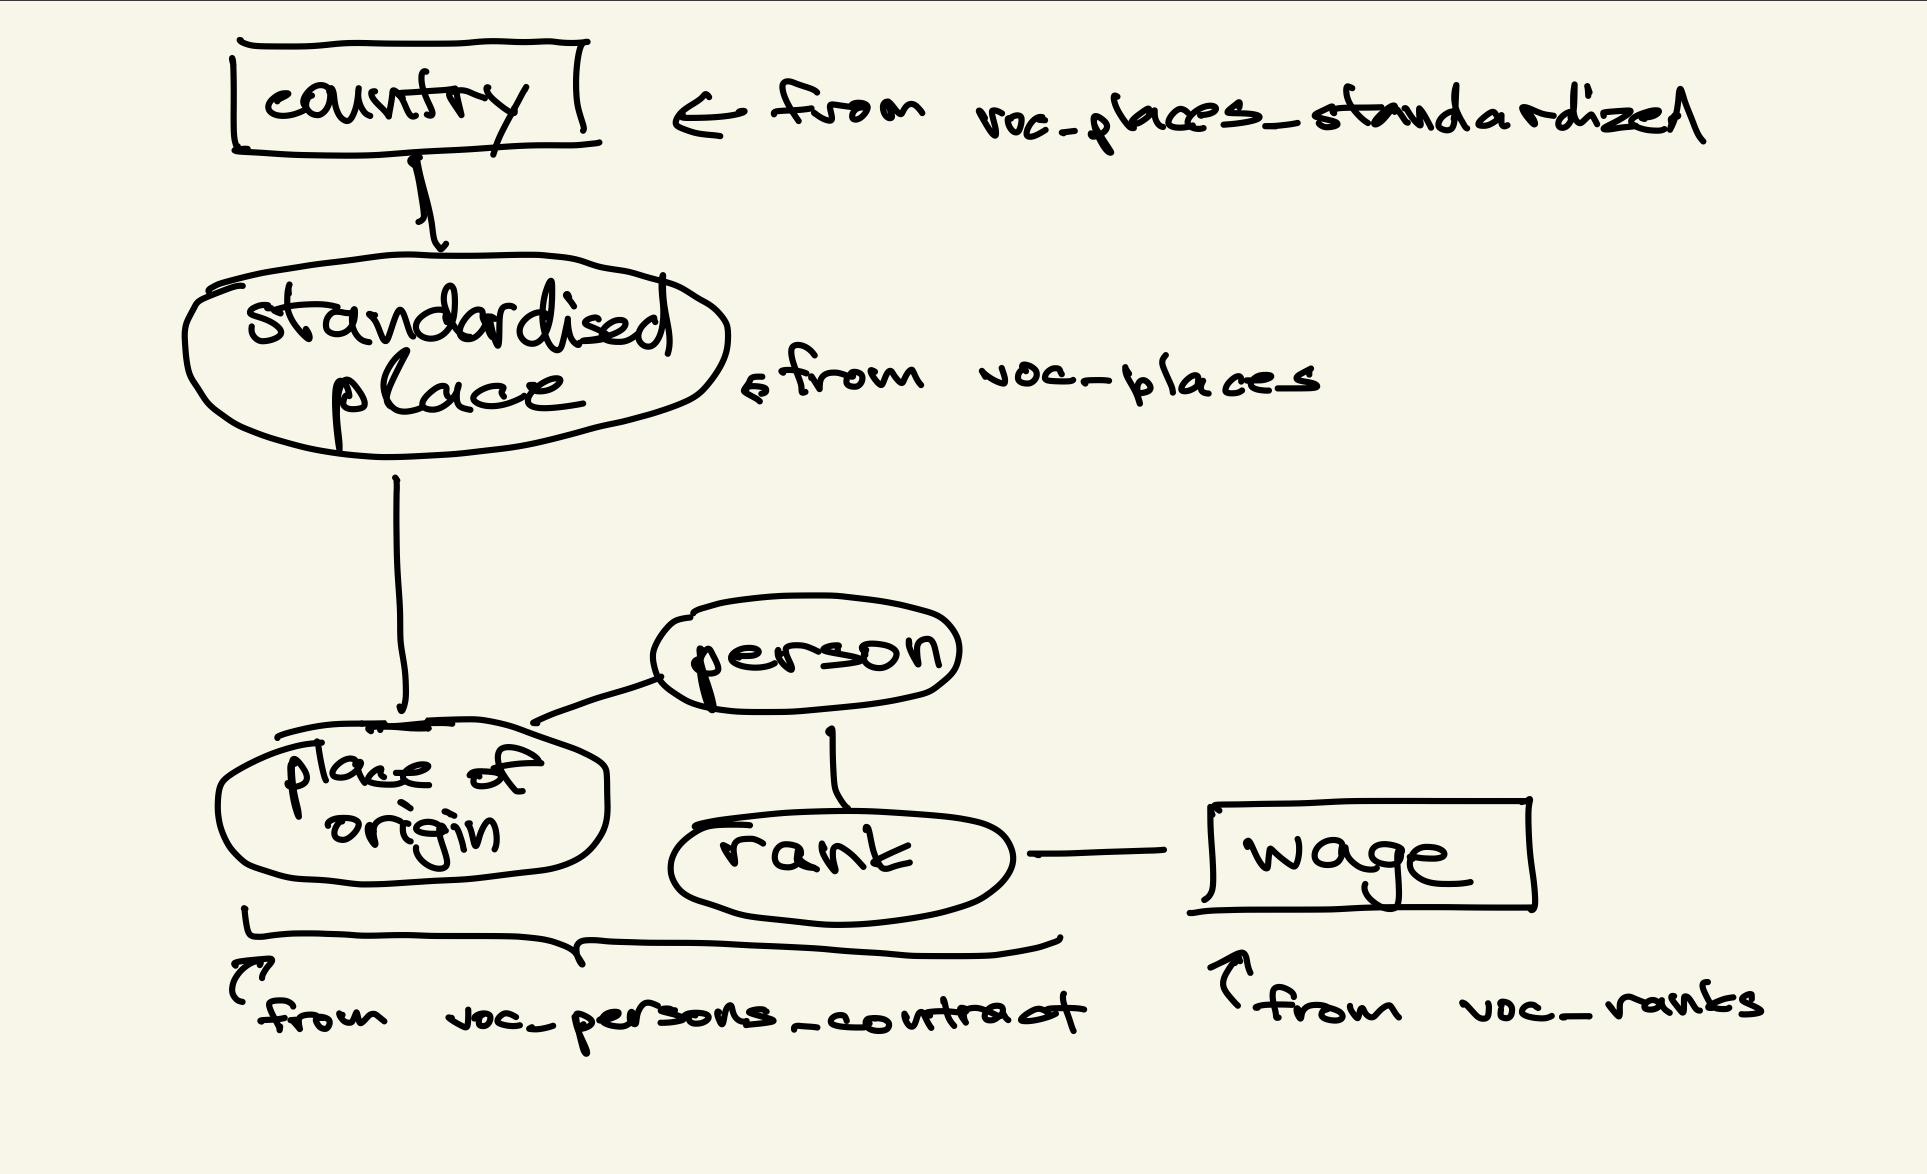 country
from voc_places_standardized
standardised
place
from voc_places
person
place of
origin
rank
wage
from voc_persons_contract
from voc_ranks